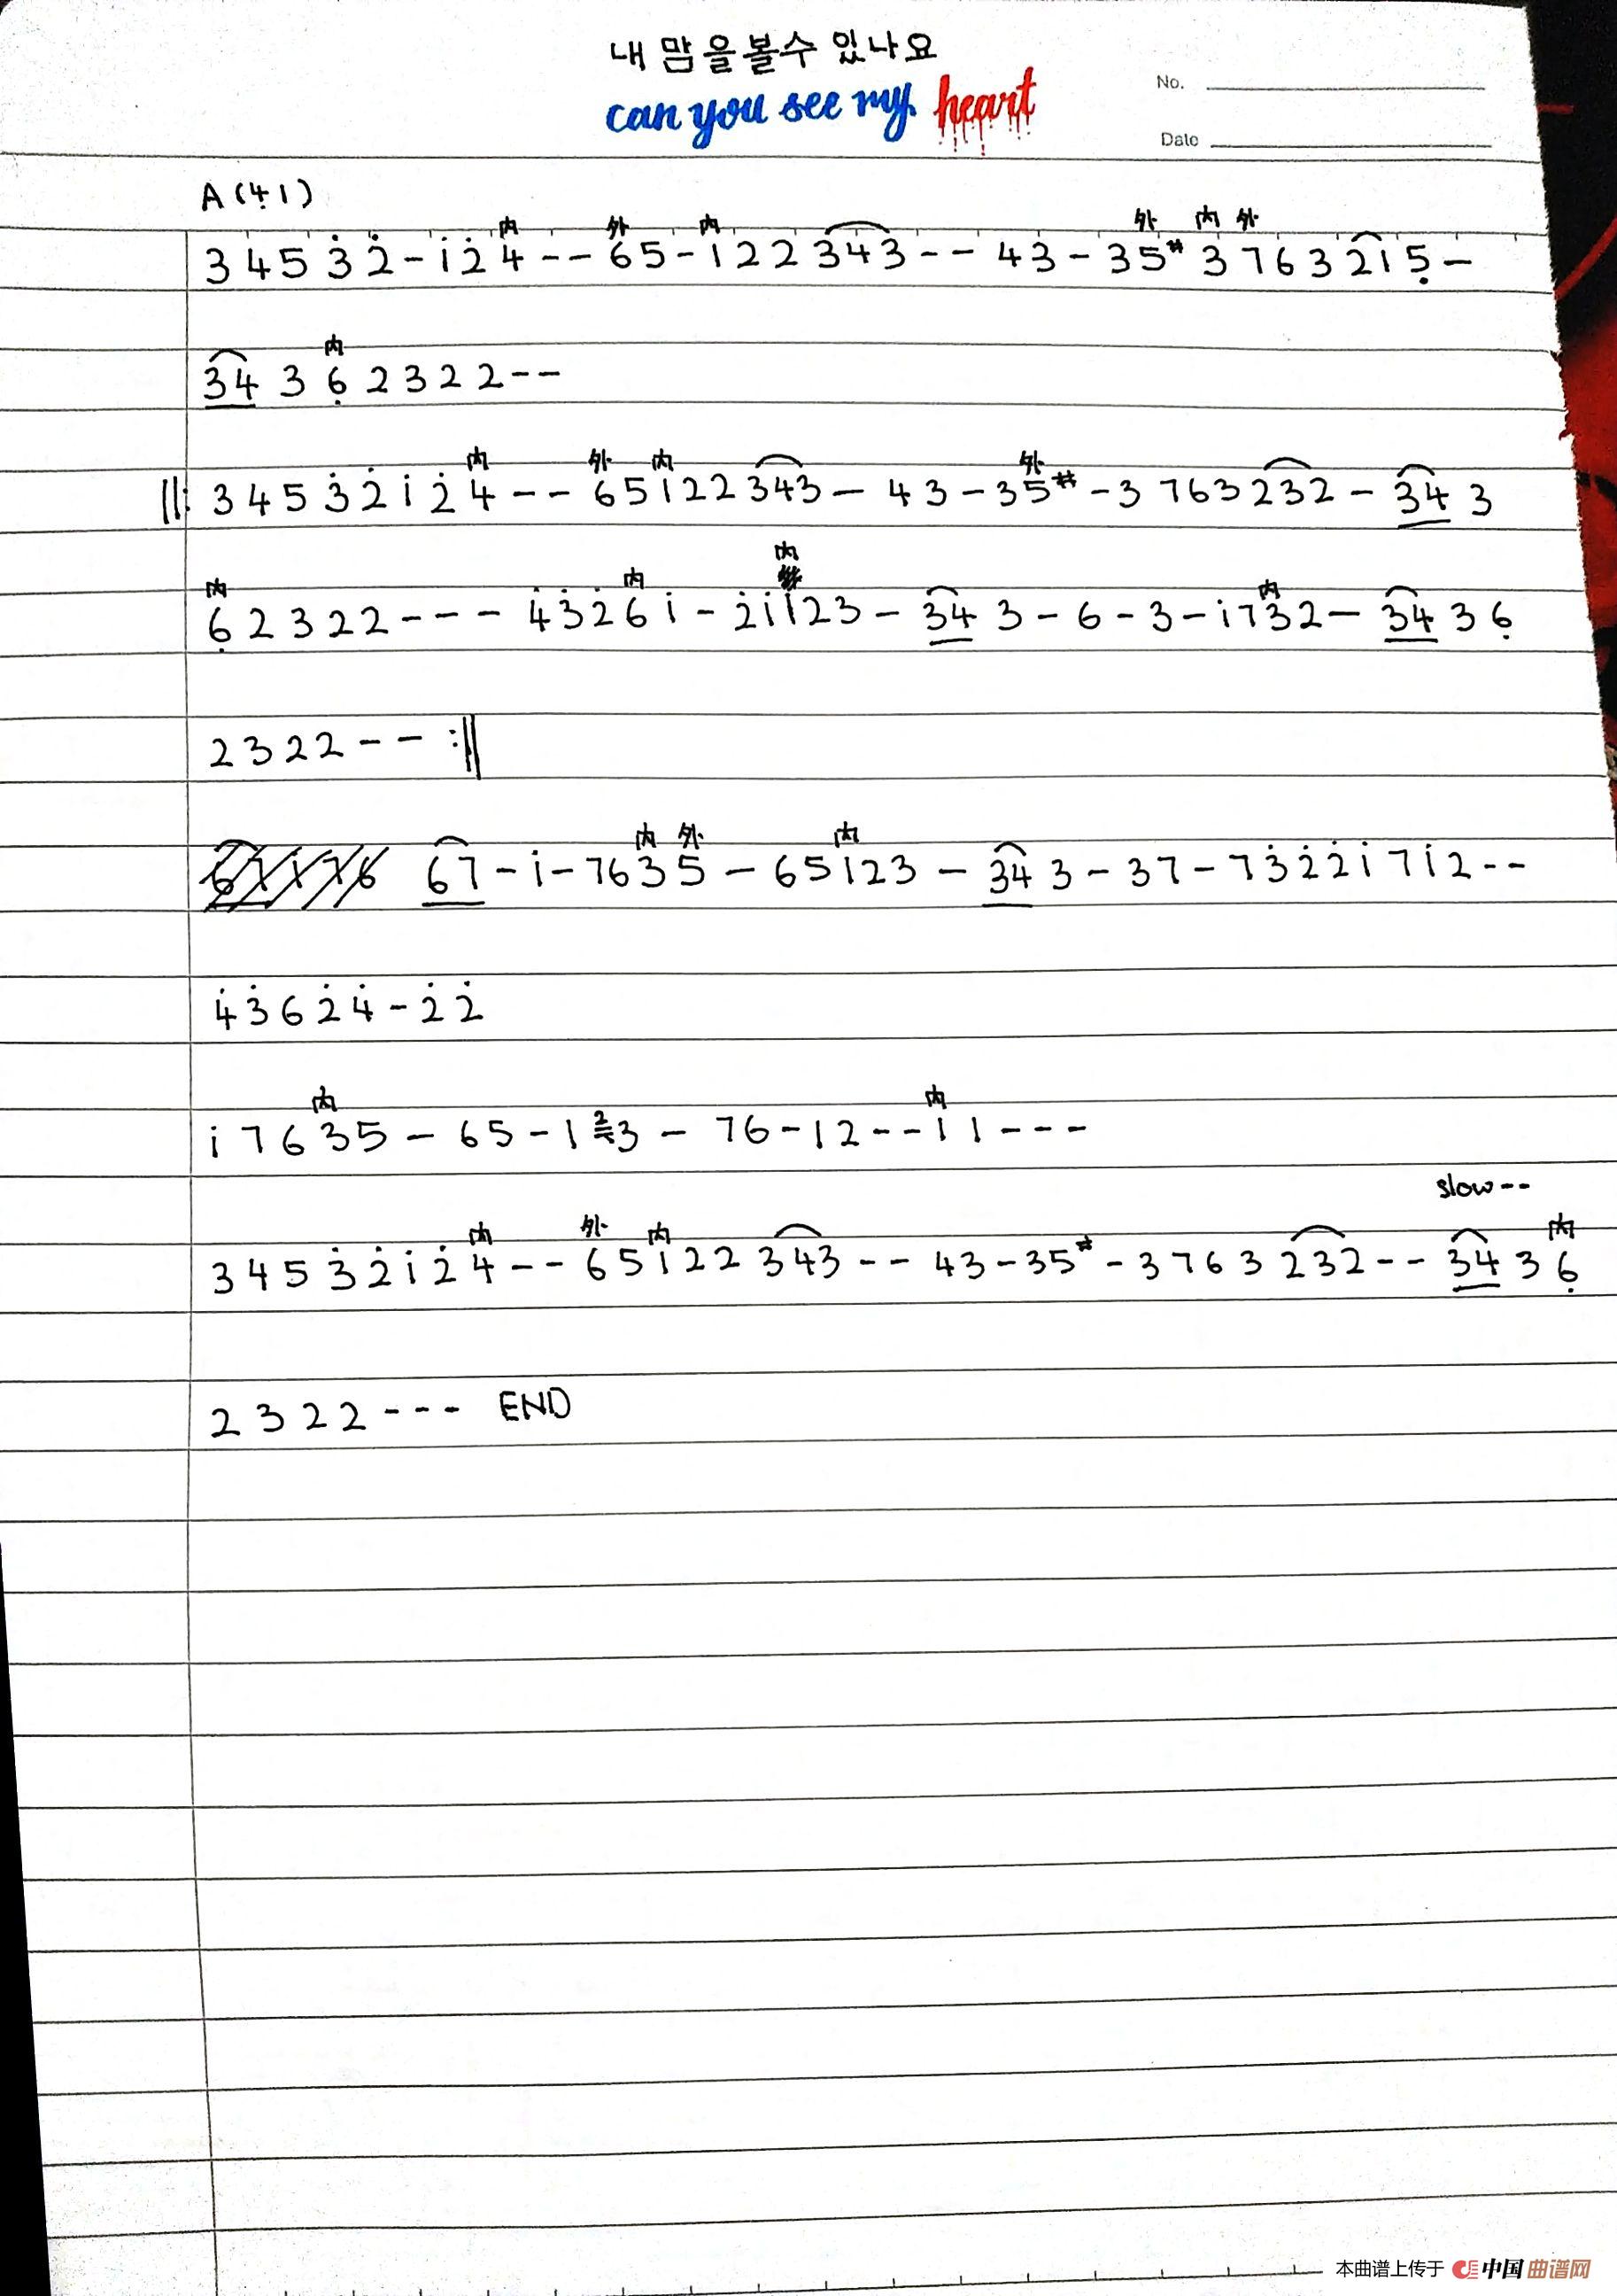 내 맘을 볼수 있나요
can you see my heart
No.
Date
A (4̣ 1)
内 外 内 外 内 外
3 4 5 3̇ 2̇ - i 2̇ 4 - - 6 5 - 1 2 2 3 4 3 - - 4 3 - 3 5# 3 7 6 3 2 1 5̣ -
内
3 4 3 6̣ 2 3 2 2 - -
内 外 内 外
||: 3 4 5 3̇ 2̇ i 2̇ 4 - - 6 5 1 2 2 3 4 3 - 4 3 - 3 5# - 3 7 6 3 2 3 2 - 3 4 3
内 内 内 内
6̣ 2 3 2 2 - - - 4̇ 3̇ 2̇ 6 i - 2̇ i 1 2 3 - 3 4 3 - 6 - 3 - i 7 3 2 - 3 4 3 6̣
2 3 2 2 - - :||
内 外 内
6 7 - i - 7 6 3 5 - 6 5 1 2 3 - 3 4 3 - 3 7 - 7 3̇ 2̇ 2̇ i 7 i 2 - -
4̇ 3̇ 6 2̇ 4̇ - 2̇ 2̇
内 内
i 7 6 3 5 - 6 5 - 1 2 3 - 7 6 - 1 2 - - 1 1 - - -
slow - -
内 外 内 内
3 4 5 3̇ 2̇ i 2̇ 4 - - 6 5 1 2 2 3 4 3 - - 4 3 - 3 5# - 3 7 6 3 2 3 2 - - 3 4 3 6̣
2 3 2 2 - - - END
本曲谱上传于 中国曲谱网